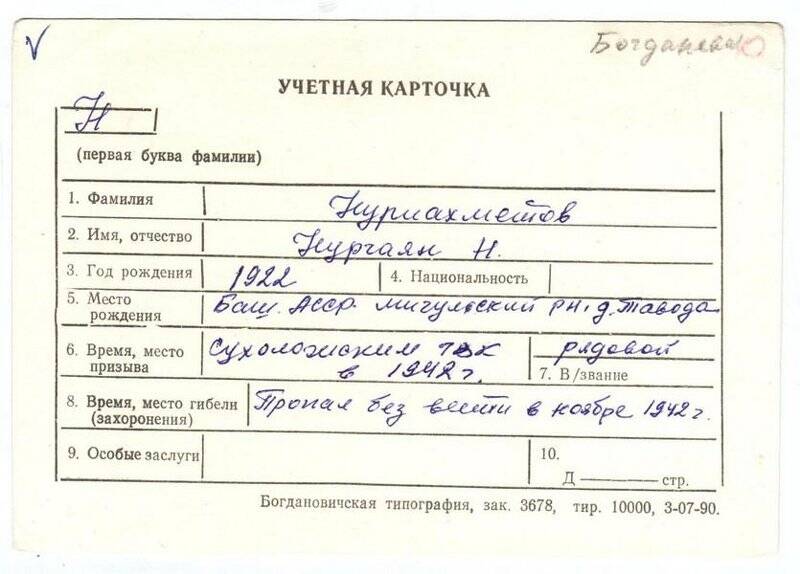 V
УЧЕТНАЯ КАРТОЧКА
Н
(первая буква фамилии)
1. Фамилия Нуриахметов
2. Имя, отчество Нургаян Н.
3. Год рождения 1922 4. Национальность
5. Место рождения Баш. Асср. мигульский рн. д. Тавода
6. Время, место призыва Сухоложским РВК в 1942 г. рядовой
7. В/звание
8. Время, место гибели (захоронения) Пропал без вести в ноябре 1942 г.
9. Особые заслуги 10.
Д ——— стр.
Богдановичская типография, зак. 3678, тир. 10000, 3-07-90.